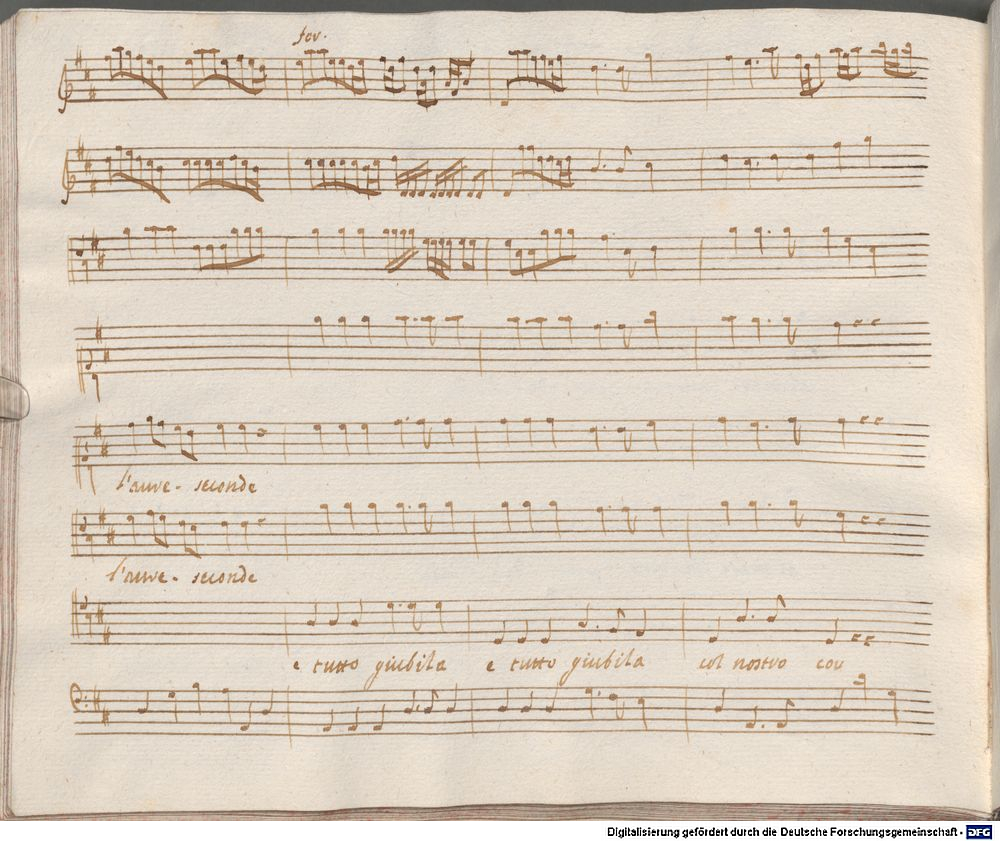 for.
l'aure - seconde
l'aure - seconde
e tutto giubila e tutto giubila col nostro cor
Digitalisierung gefördert durch die Deutsche Forschungsgemeinschaft - DFG